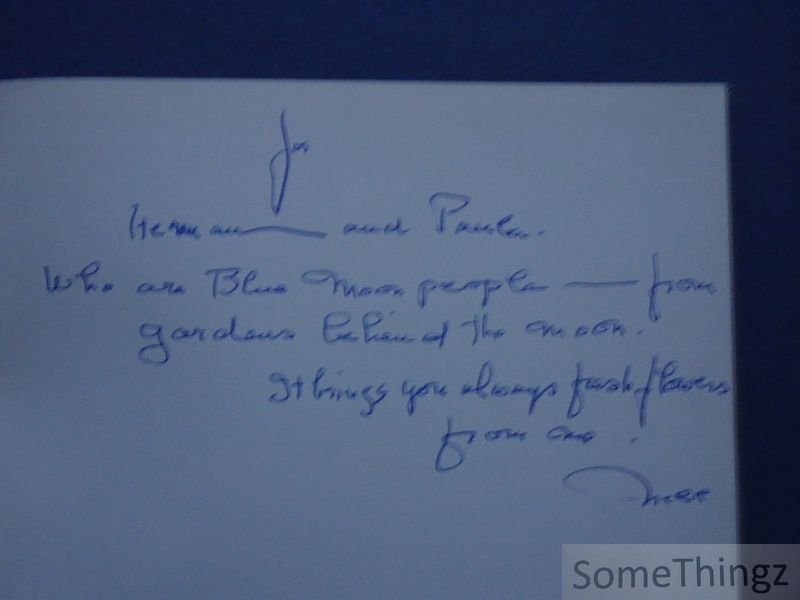 for
Herman — and Paula.
Who are Blue Moon people — from
gardens behind the moon.
It brings you always fresh flowers
from me.
SomeThingz